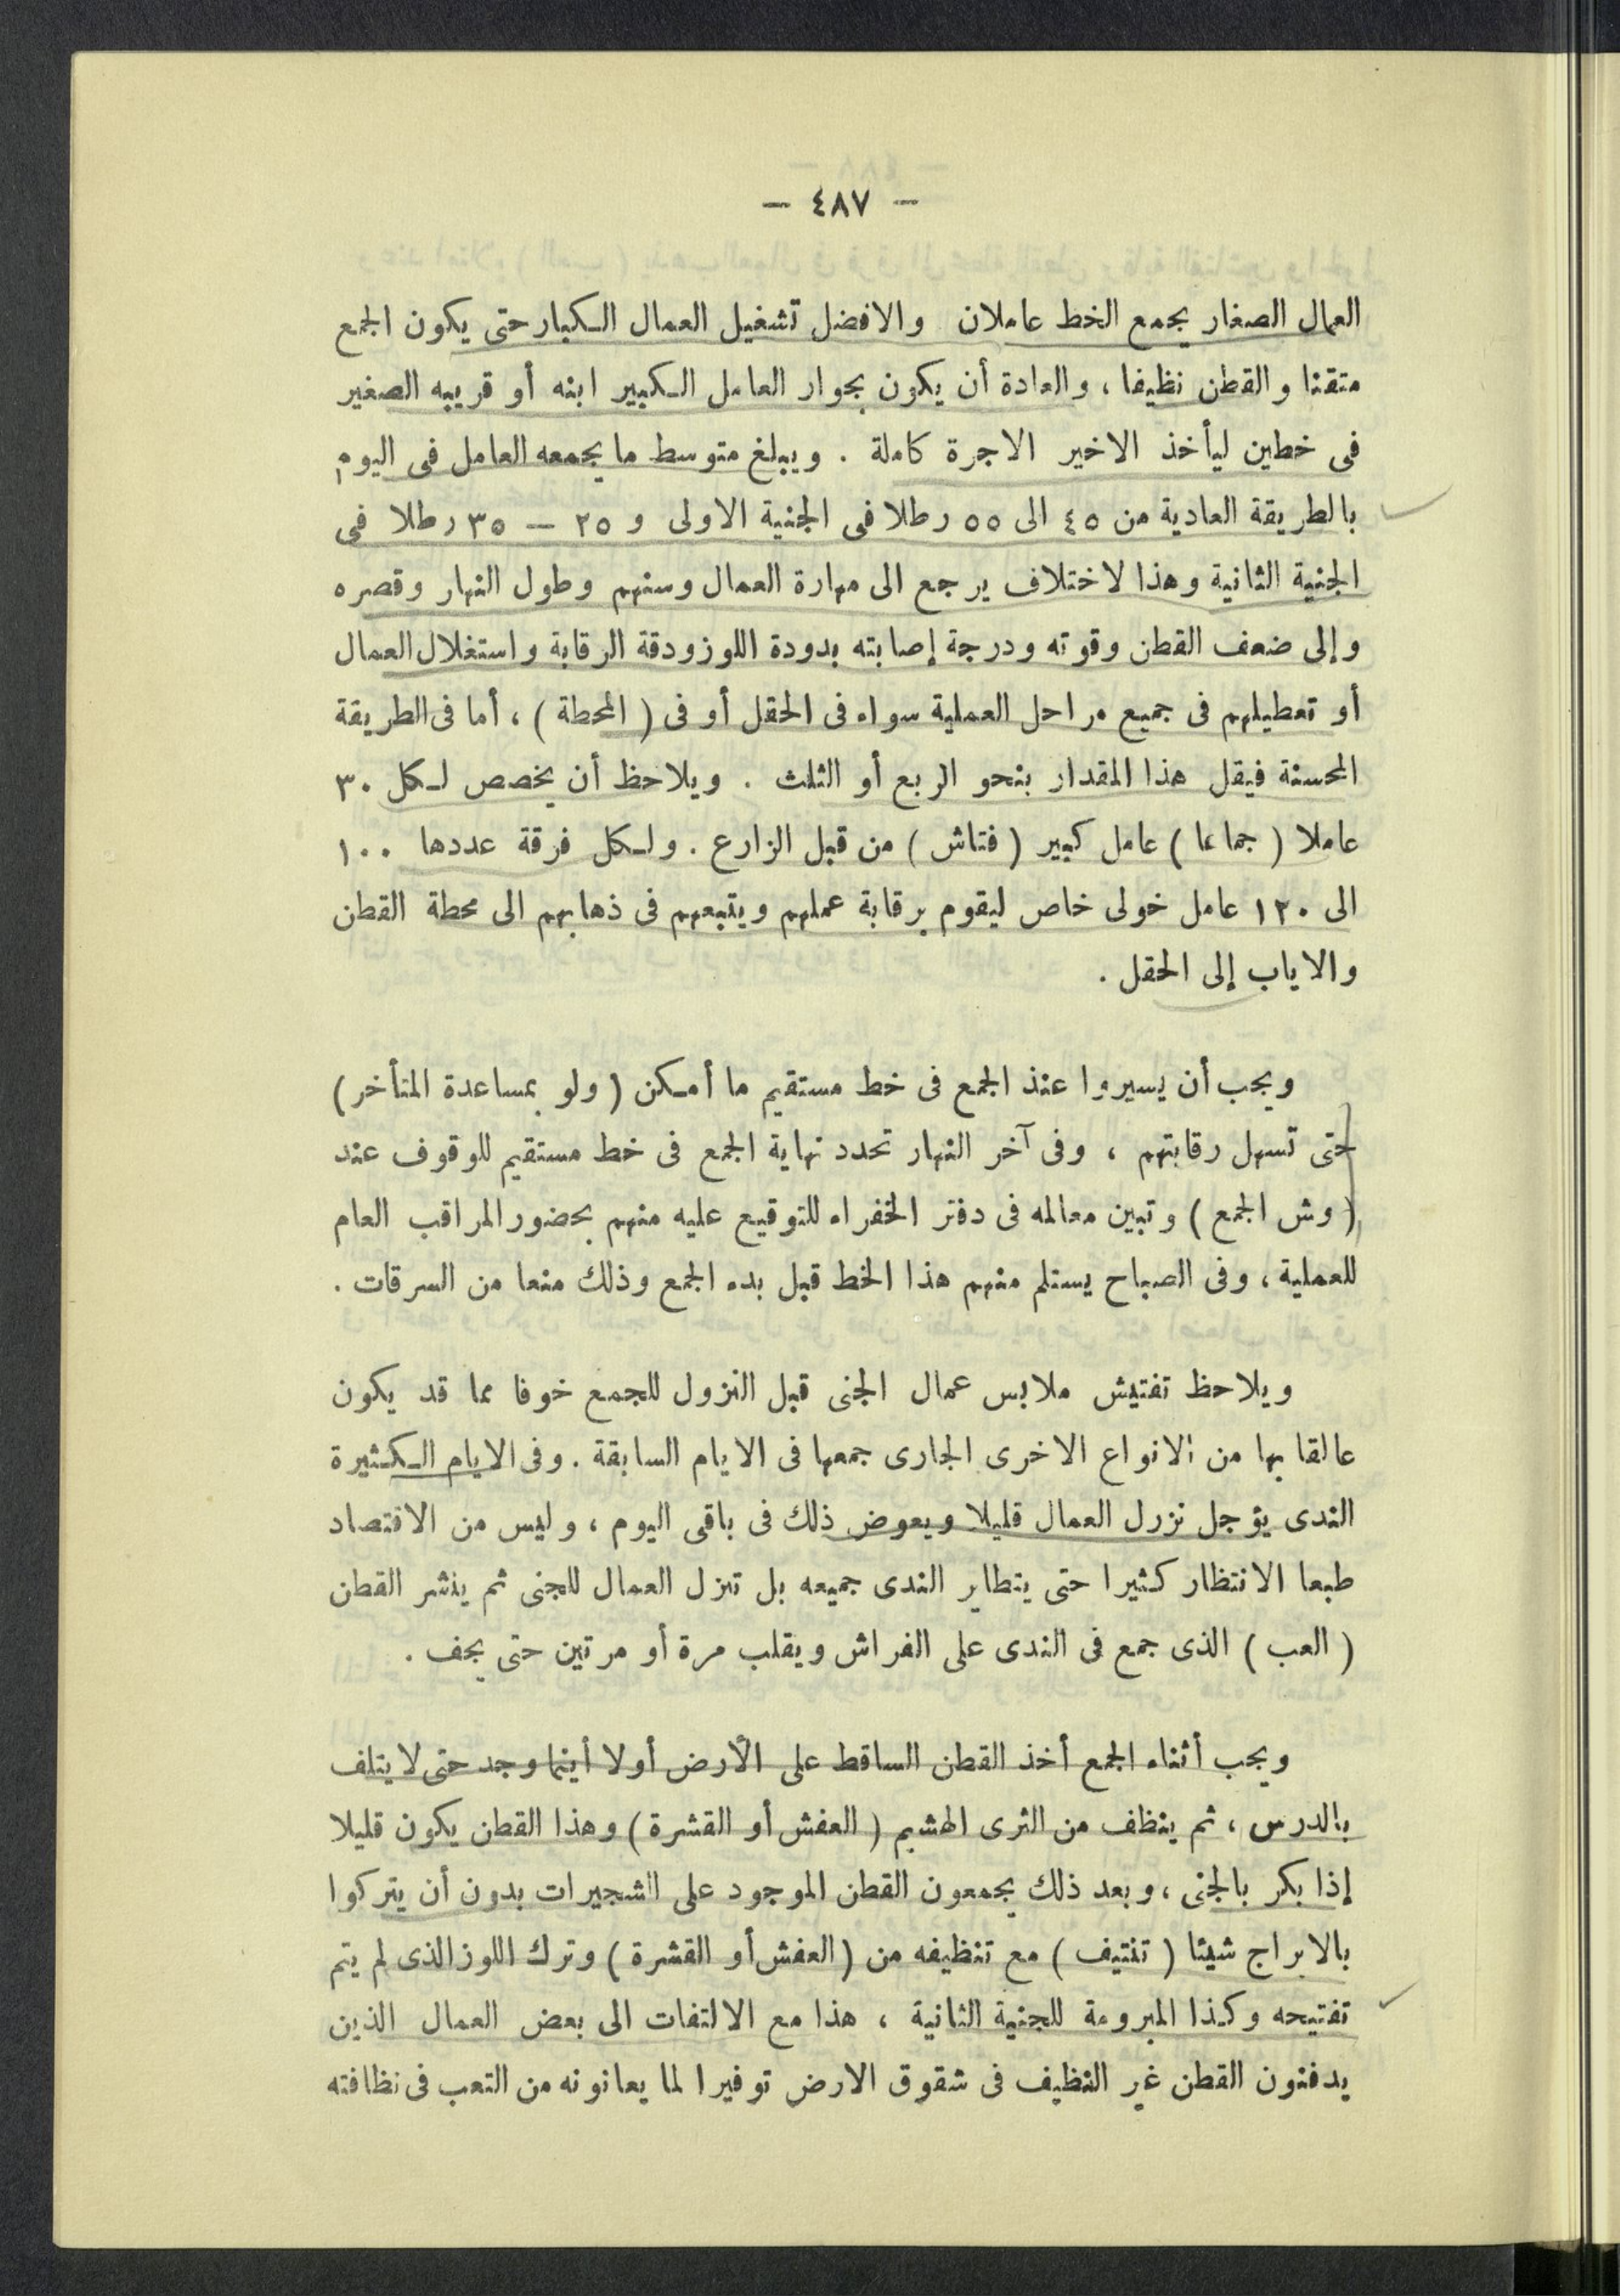 — ٤٨٧ —
العمال الصغار يجمع الخط عاملان والافضل تشغيل العمال الكبار حتى يكون الجمع
متقنا والقطن نظيفا ، والعادة أن يكون بجوار العامل الكبير ابنه أو قريبه الصغير
فى خطين ليأخذ الاخير الاجرة كاملة . ويبلغ متوسط ما يجمعه العامل فى اليوم
بالطريقة العادية من ٤٥ الى ٥٥ رطلا فى الجنية الاولى و ٢٥ — ٣٥ رطلا فى
الجنية الثانية وهذا لاختلاف يرجع الى مهارة العمال وسنهم وطول النهار وقصره
وإلى ضعف القطن وقوته ودرجة إصابته بدودة اللوز ودقة الرقابة واستغلال العمال
أو تعطيلهم فى جميع مراحل العملية سواء فى الحقل أو فى ( المحطة ) ، أما فى الطريقة
المحسنة فيقل هذا المقدار بنحو الربع أو الثلث . ويلاحظ أن يخصص لكل ٣٠
عاملا ( جماعا ) عامل كبير ( فتاش ) من قبل الزارع . ولكل فرقة عددها ١٠٠
الى ١٢٠ عامل خولى خاص ليقوم برقابة عملهم ويتبعهم فى ذهابهم الى محطة القطن
والاياب إلى الحقل .
ويجب أن يسيروا عند الجمع فى خط مستقيم ما أمكن ( ولو بمساعدة المتأخر )
حتى تسهل رقابتهم ، وفى آخر النهار تحدد نهاية الجمع فى خط مستقيم للوقوف عند
( وش الجمع ) وتبين معالمه فى دفتر الخفراء للتوقيع عليه منهم بحضور المراقب العام
للعملية ، وفى الصباح يستلم منهم هذا الخط قبل بدء الجمع وذلك منعا من السرقات .
ويلاحظ تفتيش ملابس عمال الجنى قبل النزول للجمع خوفا مما قد يكون
عالقا بها من الانواع الاخرى الجارى جمعها فى الايام السابقة . وفى الايام الكثيرة
الندى يؤجل نزول العمال قليلا ويعوض ذلك فى باقى اليوم ، وليس من الاقتصاد
طبعا الانتظار كثيرا حتى يتطاير الندى جميعه بل تنزل العمال للجنى ثم ينشر القطن
( العب ) الذى جمع فى الندى على الفراش ويقلب مرة أو مرتين حتى يجف .
ويجب أثناء الجمع أخذ القطن الساقط على الأرض أولا أينما وجد حتى لا يتلف
بالدرس ، ثم ينظف من الثرى الهشيم ( العفش أو القشرة ) وهذا القطن يكون قليلا
إذا بكر بالجنى ، وبعد ذلك يجمعون القطن الموجود على الشجيرات بدون أن يتركوا
بالابراج شيئا ( تنتيف ) مع تنظيفه من ( العفش أو القشرة ) وترك اللوز الذى لم يتم
تفتيحه وكذا المبرومة للجنية الثانية ، هذا مع الالتفات الى بعض العمال الذين
يدفنون القطن غير النظيف فى شقوق الارض توفيرا لما يعانونه من التعب فى نظافته